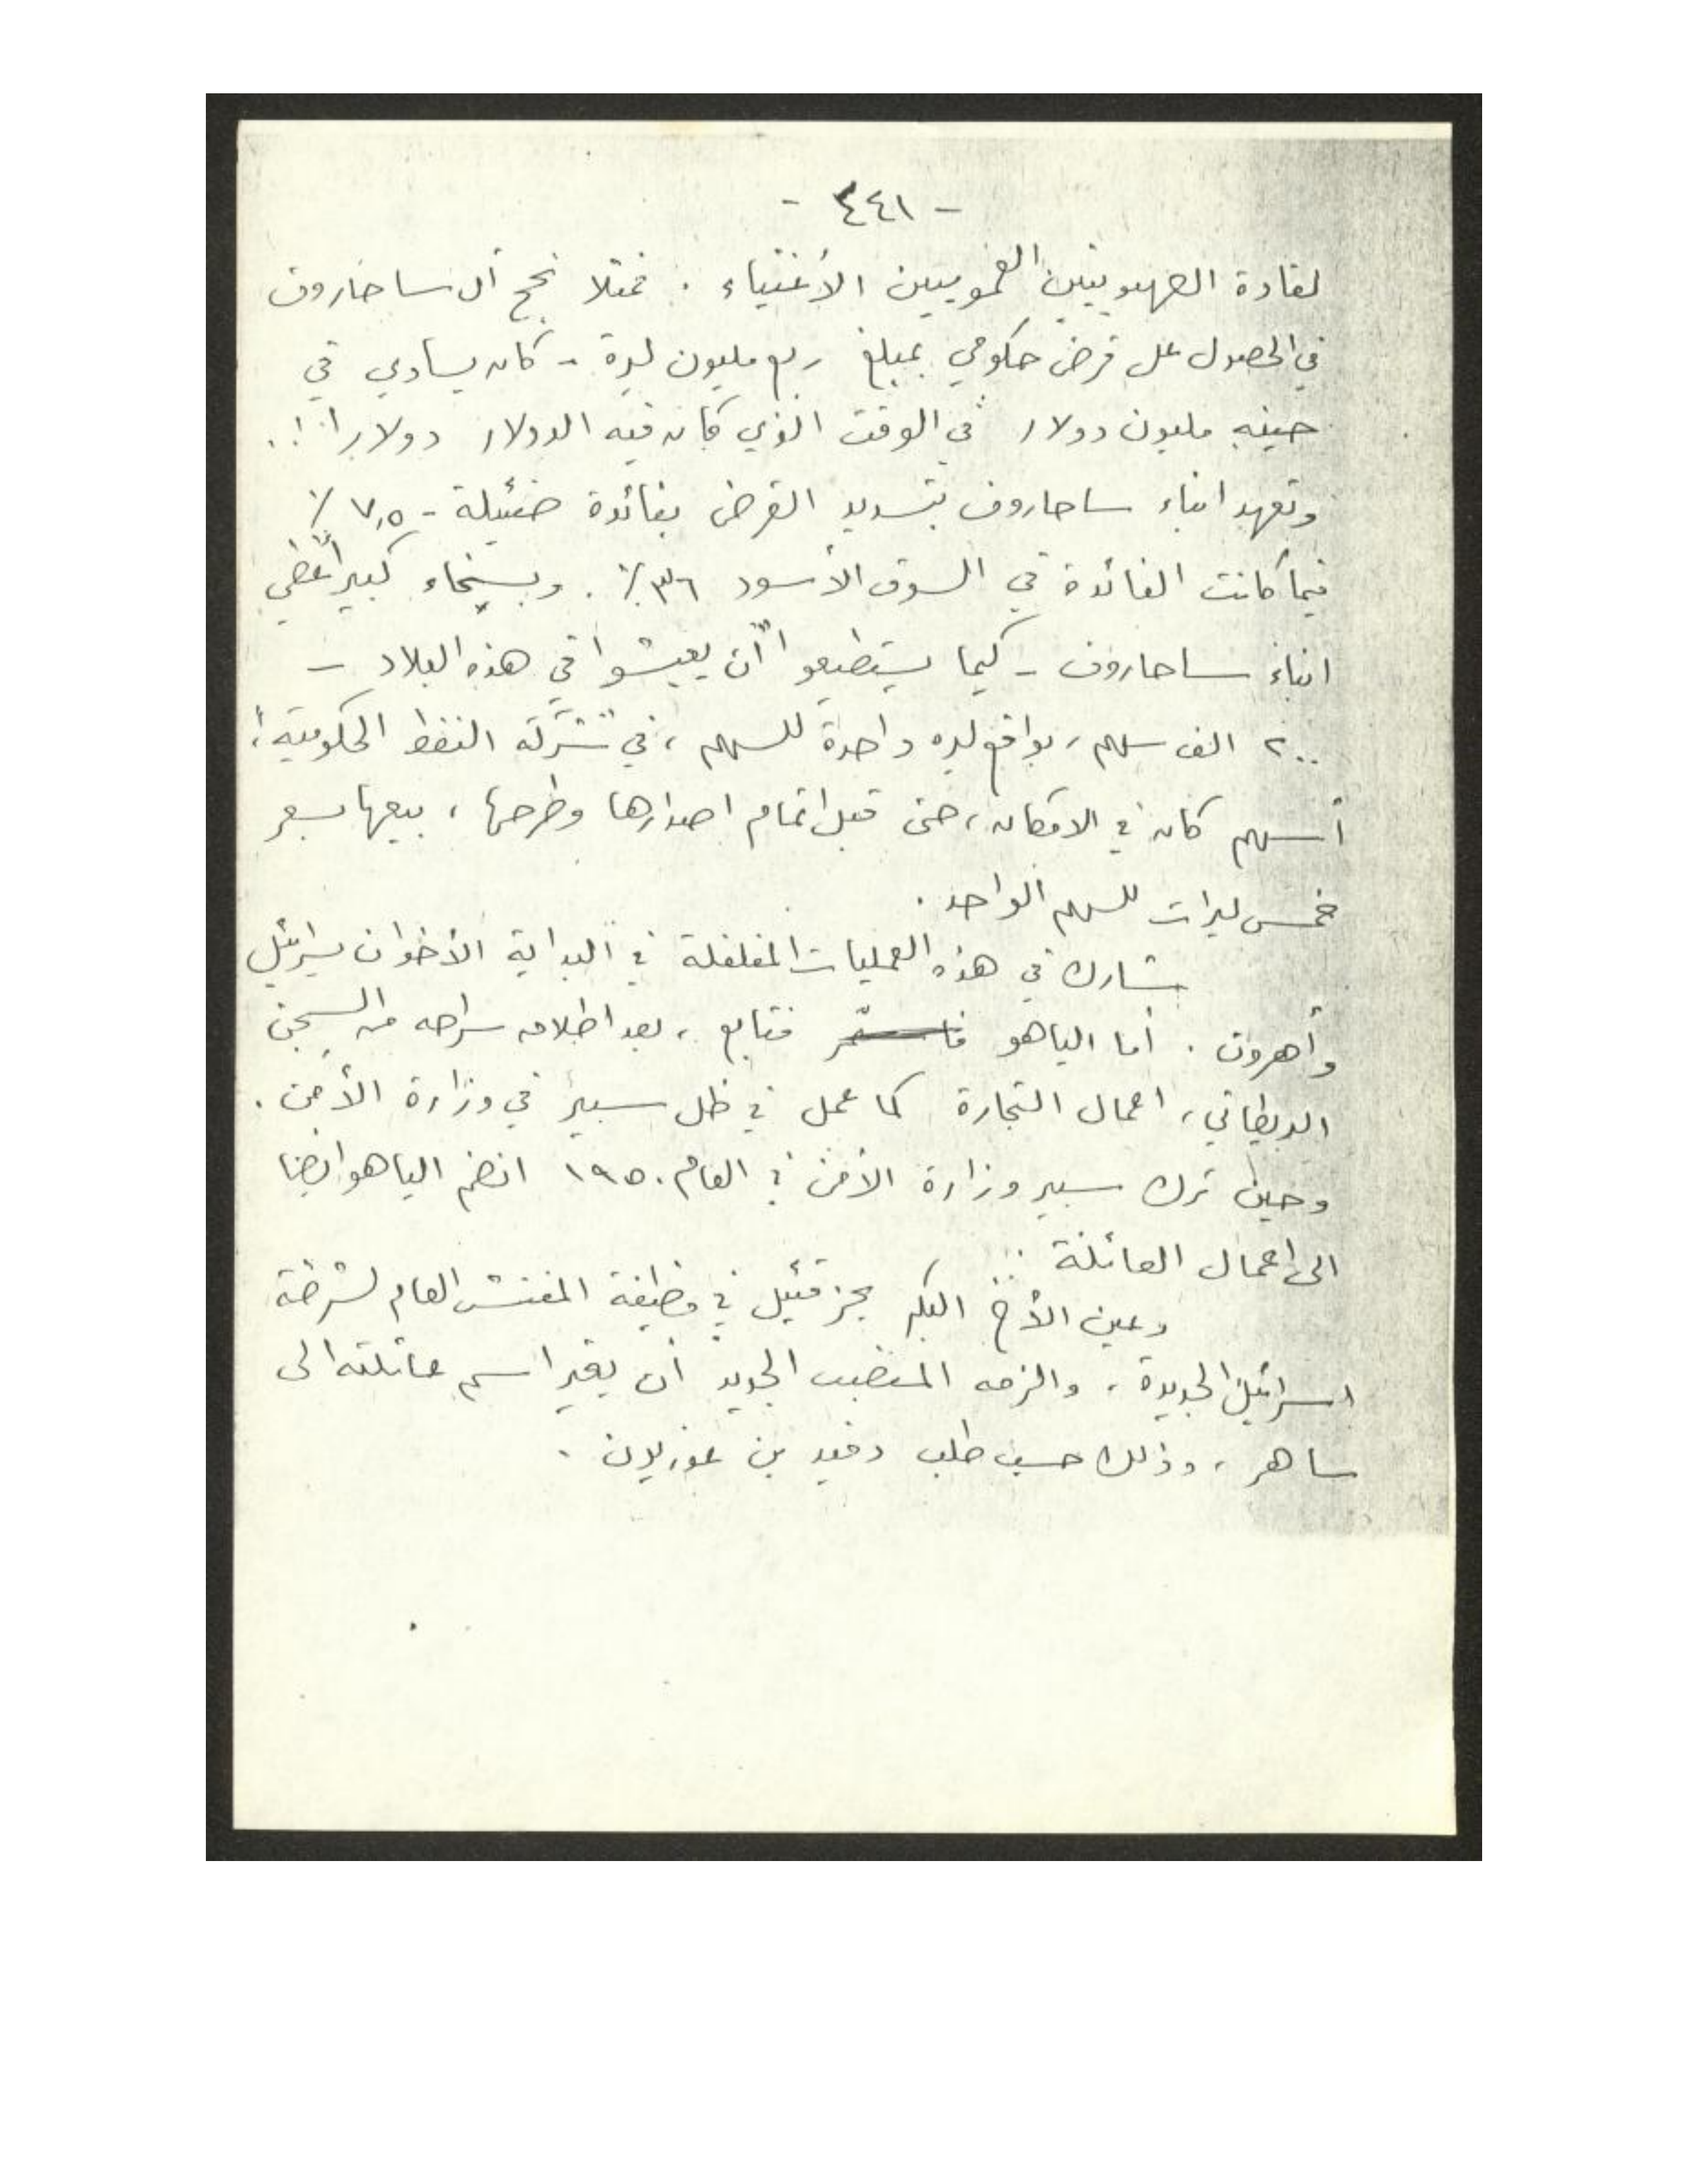 - ٤٤١ -
لقادة الصهيونيين العموميين الأغنياء . فمثلا نجح آل ساخاروف
في الحصول على قرض حكومي بمبلغ ربع مليون ليرة - كان يساوي في
حينه مليون دولار في الوقت الذي كان فيه الدولار دولارا !.
وتعهد ابناء ساحاروف بتسديد القرض بفائدة ضئيلة - ٧,٥ ٪
فيما كانت الفائدة في السوق الأسود ٣٦ ٪ . وبسخاء كبير أعطي
ابناء ساحاروف - كيما يستطيعوا "أن يعيشوا في هذه البلاد -
٢٠٠ الف سهم ، بواقع ليره واحدة للسهم ، في شركة النفط الحكومية ؛
أسهم كان في الامكان ، حتى قبل اتمام اصدارها وطرحها ، بيعها بسعر
خمس ليرات للسهم الواحد .
شارك في هذه العمليات في البداية الأخوان يسرائيل
وأهرون . أما الياهو فتابع ، بعد اطلاق سراحه من السجن
البريطاني ، اعمال التجارة كما عمل في ظل سبير في وزارة الأمن .
وحين ترك سبير وزارة الأمن في العام ١٩٥٠ انضم الياهو ايضا
الى اعمال العائلة .
وعين الأخ البكر يحزقئيل في وظيفة المفتش العام لشرطة
اسرائيل الجديدة ، والزمه المنصب الجديد أن يغير اسم عائلته الى
ساهر ، وذلك حسب طلب دفيد بن غوريون .